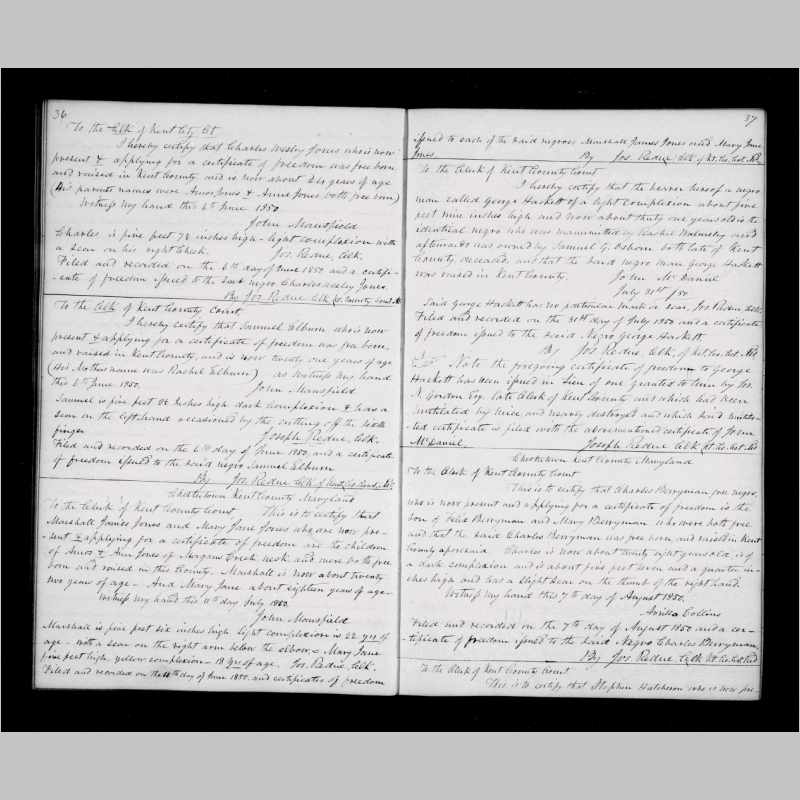 36
To the Clk of Kent Cty Ct
I hereby certify that Charles Wesley Jones who is now
present & applying for a certificate of freedom was free born
and raised in Kent County and is now about 24 years of age
(His parents names were Amos Jones & Anne Jones both free born)
Witness my hand this 6th June 1850
John Mansfield
Charles is five feet 7¾ inches high - light complexion with
a scar on his right cheek. Jos. Redue, Clk.
Filed and recorded on the 6th day of June 1850 and a certifi-
-cate of freedom issued to the said negro Charles Wesley Jones
By Jos Redue Clk Kt. County Court Md
To the Clk of Kent County Court
I hereby certify that Samuel Elburn who is now
present & applying for a certificate of freedom was free born,
and raised in Kent County, and is now twenty one years of age
(His Mothers name was Rachel Elburn) as witness my hand
this 6th June 1850. John Mansfield
Samuel is five feet inches high dark complexion & has a
scar on the left hand occasioned by the cutting off the sixth
finger Joseph Redue, Clk.
Filed and recorded on the 6th day of June 1850, and a certificate
of freedom issued to the said negro Samuel Elburn
By Jos Redue Clk of Kent Co Court Md
Chestertown Kent County Maryland
To the Clerk of Kent County Court This is to certify that
Marshall James Jones and Mary Jane Jones who are now pre-
-sent & applying for a certificate of freedom are the children
of Amos & Ann Jones of Morgans Creek neck and were both free
born and raised in this County. Marshall is now about twenty
two years of age - And Mary Jane about eighteen years of age -
Witness my hand this 11th day July 1850.
John Mansfield
Marshall is five feet six inches high light complexion is 22 yrs of
age - with a scar on the right arm below the elbow, & Mary Jane
five feet high, yellow complexion - 18 yrs of age. Jos. Redue Clk.
Filed and recorded on the 11th day of June 1850. and certificates of freedom
37
issued to each of the said negroes Marshall James Jones and Mary Jane
Jones. By Jos. Redue Clk of Kt. Co. Cot. Md.
To the Clerk of Kent County Court
I hereby certify that the bearer hereof a negro
man called George Hackett of a light complexion about five
feet nine inches high and now about thirty one years old is the
identical negro who was manumitted by Rachel Walmsley and
afterwards was owned by Samuel G. Osborn both late of Kent
County deceased, and that the said negro man George Hackett
was raised in Kent County. John McDaniel
July 31st /50
Said George Hackett has no particular mark or scar, Jos. Redue, Clk.
Filed and recorded on the 31st day of July 1850 and a certificate
of freedom issued to the said Negro George Hackett
By Jos Redue Clk, of Kt. Co. Cot. Md
Note the foregoing certificate of freedom to George
Hackett has been issued in lieu of one granted to him by Jos.
N. Gordon Esq. late Clerk of Kent County and which had been
mutilated by mice and nearly destroyed and which said mutila-
-ted certificate is filed with the abovementioned certificate of John
McDaniel. Joseph Redue Clk Kt. Co. Cot. Md
Chestertown Kent County Maryland
To the Clerk of Kent County Court
This is to certify that Charles Berryman free negro,
who is now present and applying for a certificate of freedom is the
son of Felix Berryman and Mary Berryman who were both free
and that the said Charles Berryman was free born, and raised in Kent
County aforesaid. Charles is now about twenty eight years old, is of
a dark complexion and is about five feet seven and a quarter in-
ches high and has a slight scar on the thumb of the right hand.
Witness my hand this 7th day of August 1850.
Arrilla Collins
Filed and recorded on the 7th day of August 1850 and a cer-
-tificate of freedom issued to the said Negro Charles Berryman,
By Jos. Redue Clk Kt. Co. Cot. Md
To the Clerk of Kent County Court
This is to certify that Stephen Hutcheson who is now pre-